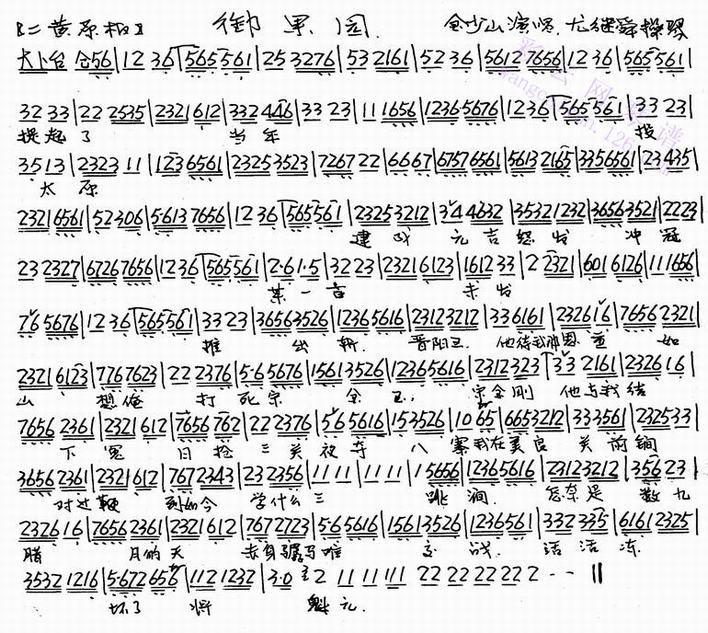 【二黄原板】 御果园 金少山演唱 尤继舜操琴
大卜台 仓56|12 36|565561|25 3276|53 2161|52 36|5612 7656|12 36|565561|
32 33|22 2535|2321 612|332 446|33 23|11 1656|1236 5676|12 36|565561|33 23|
提起了 当年 投
3513|2323 11|1236561|2325 3523|7267 22|6667|6757 6561|5613 2165|335 6561|23 435|
太原
2321 6561|52 306|5613 7656|12 36|565561|2325 3212|344 4632|3532 1232|3656 3521|2223|
建成 元吉怒发 冲冠
23 2327|6726 7656|12 36|565561|2·61·5|32 23|2321 6123|1612 33|2 2321|601 6126|11 1656|
某一言 未发
76 5676|12 36|565561|33 23|3656 3526|1236 5616|2312 3212|336161|2326 16|7656 2321|
推出斩 晋阳王 他待我的恩重 如
2321 6123|776 7623|22 2376|5·65676|1561 3526|1236 5616|2312 323|33 2161|2326 16|
山 想俺 打死宗 金 宋金刚 他与我结
7656 2361|2321 612|7656 762|22 2376|565616|153526|1065|665 3212|333561|2325 33|
下冤 日抢三关夜夺八寨我在美良关前锏
3656 2361|2321 612|767 2343|23 2356|11 11|11 11|1 5656|1236 5616|2312 3212|356 23|
对过鞭 到如今 学什么三 跳涧 怎奈是 数九
2326 16|7656 2361|2321 612|767 2723|5·65616|1561 3526|1236561|332 335|6161 2325|
腊 月的天 赤身骣马难 交战 活活冻
3532 1216|5·672656|112 1232|3·0 32 11 11 11 22 22 22 2 2··· ||
坏了 将 魁元